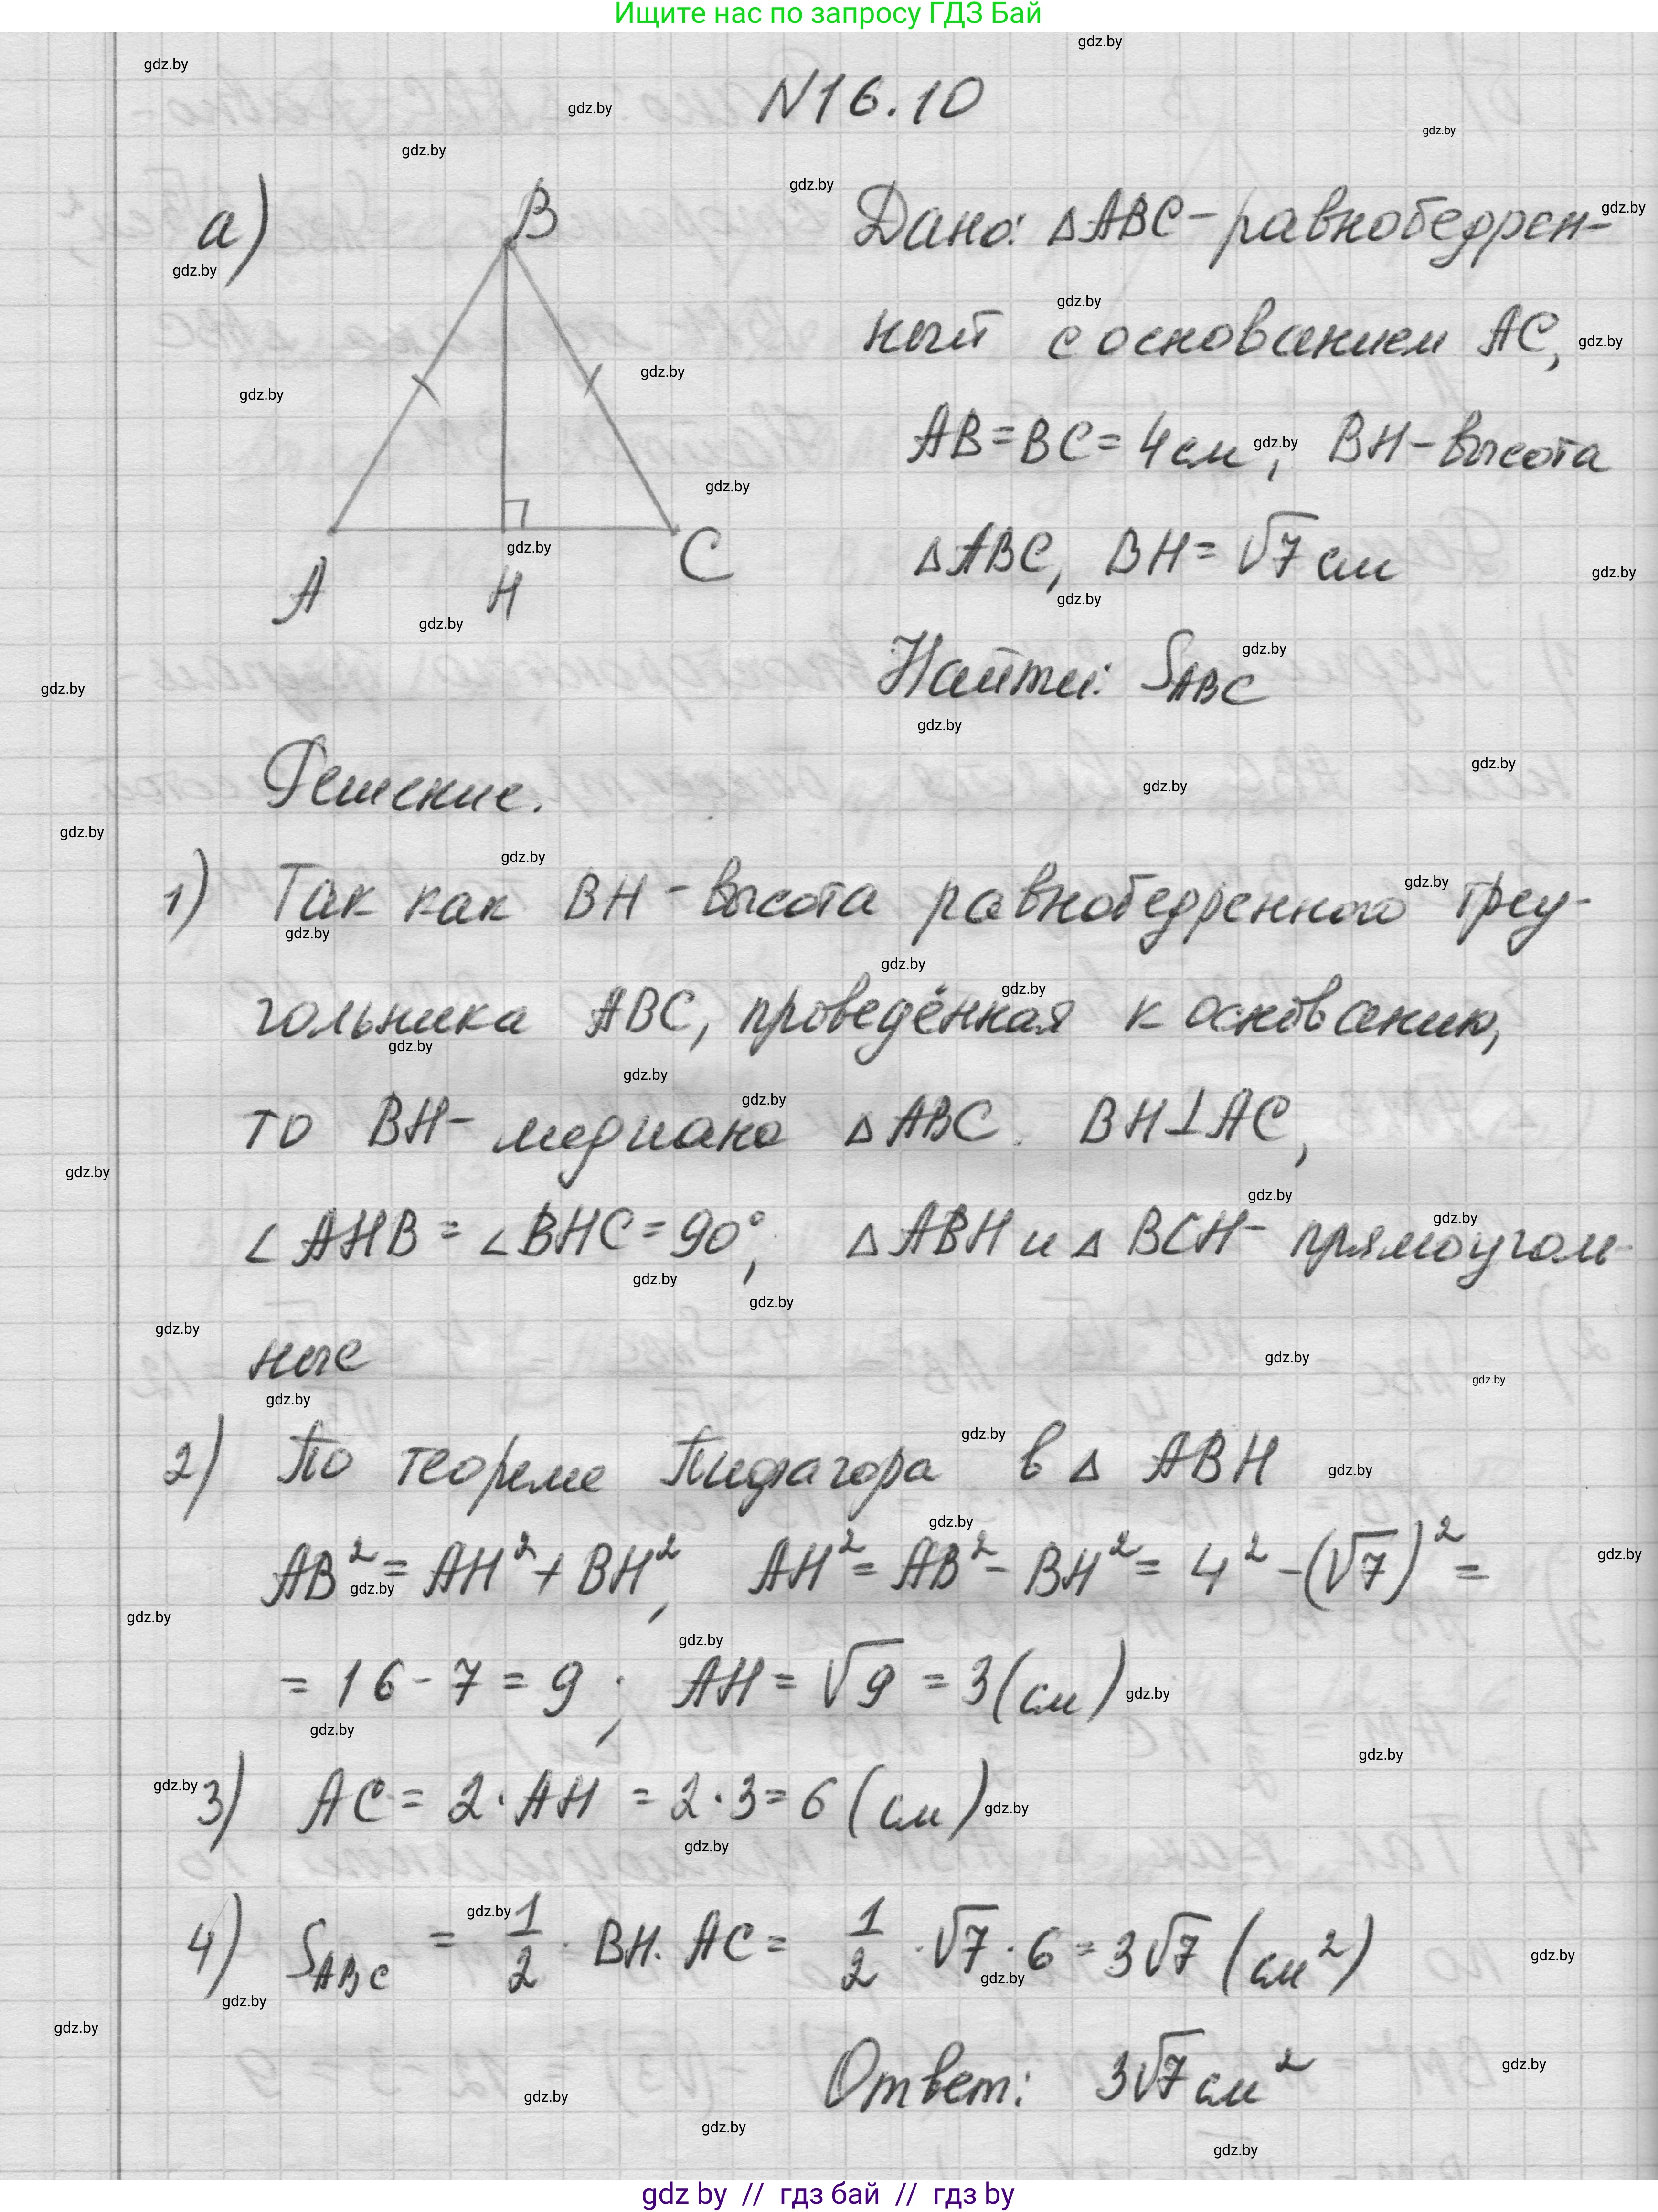 Ищите нас по запросу ГДЗ Бай
gdz.by
N16.10
а)
B
A
H
C
Дано: △ABC-равнобедрен-
ный с основанием AC,
AB=BC=4см, BH-высота
△ABC, BH=√7 см
Найти: S_ABC
Решение.
1) Так как BH-высота равнобедренного треу-
гольника ABC, проведённая к основанию,
то BH-медиана △ABC. BH⊥AC,
∠AHB=∠BHC=90°, △ABH и △BCH-прямоуголь-
ные
2) По теореме Пифагора в △ ABH
AB²=AH²+BH², AH²=AB²-BH²=4²-(√7)²=
=16-7=9; AH=√9=3(см)
3) AC=2·AH=2·3=6(см)
4) S_ABC = 1/2 · BH·AC= 1/2 ·√7·6=3√7 (см²)
Ответ: 3√7 см²
gdz by // гдз бай // гдз by